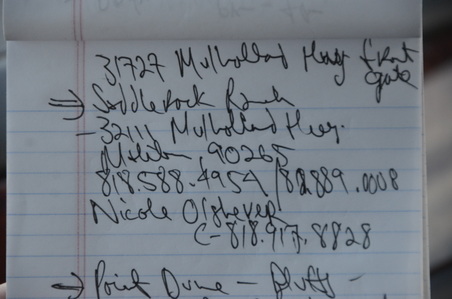 31727 Mulholland Hwy front
gate
⇒ Saddlerock Ranch
- 32111 Mulholland Hwy.
Malibu 90265
818.588.4954 / 818.889.0008
Nicole
C-818.917.8828
⇒ Point Dume - Bluffs -